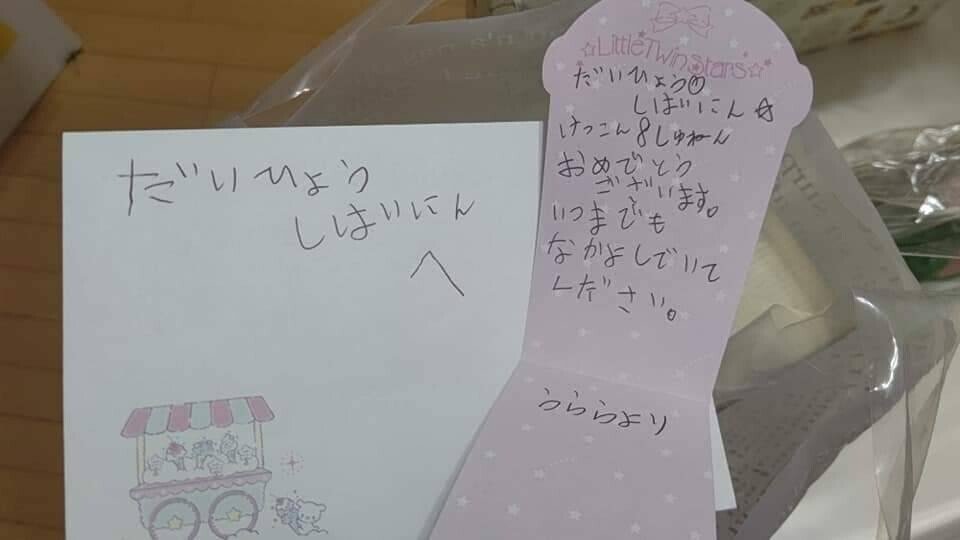 だいひょう
しはいにん
へ
☆LittleTwinStars☆
だいひょう
しはいにん☆
けっこん8しゅねん
おめでとう
ございます。
いつまでも
なかよしでいて
ください。
うららより